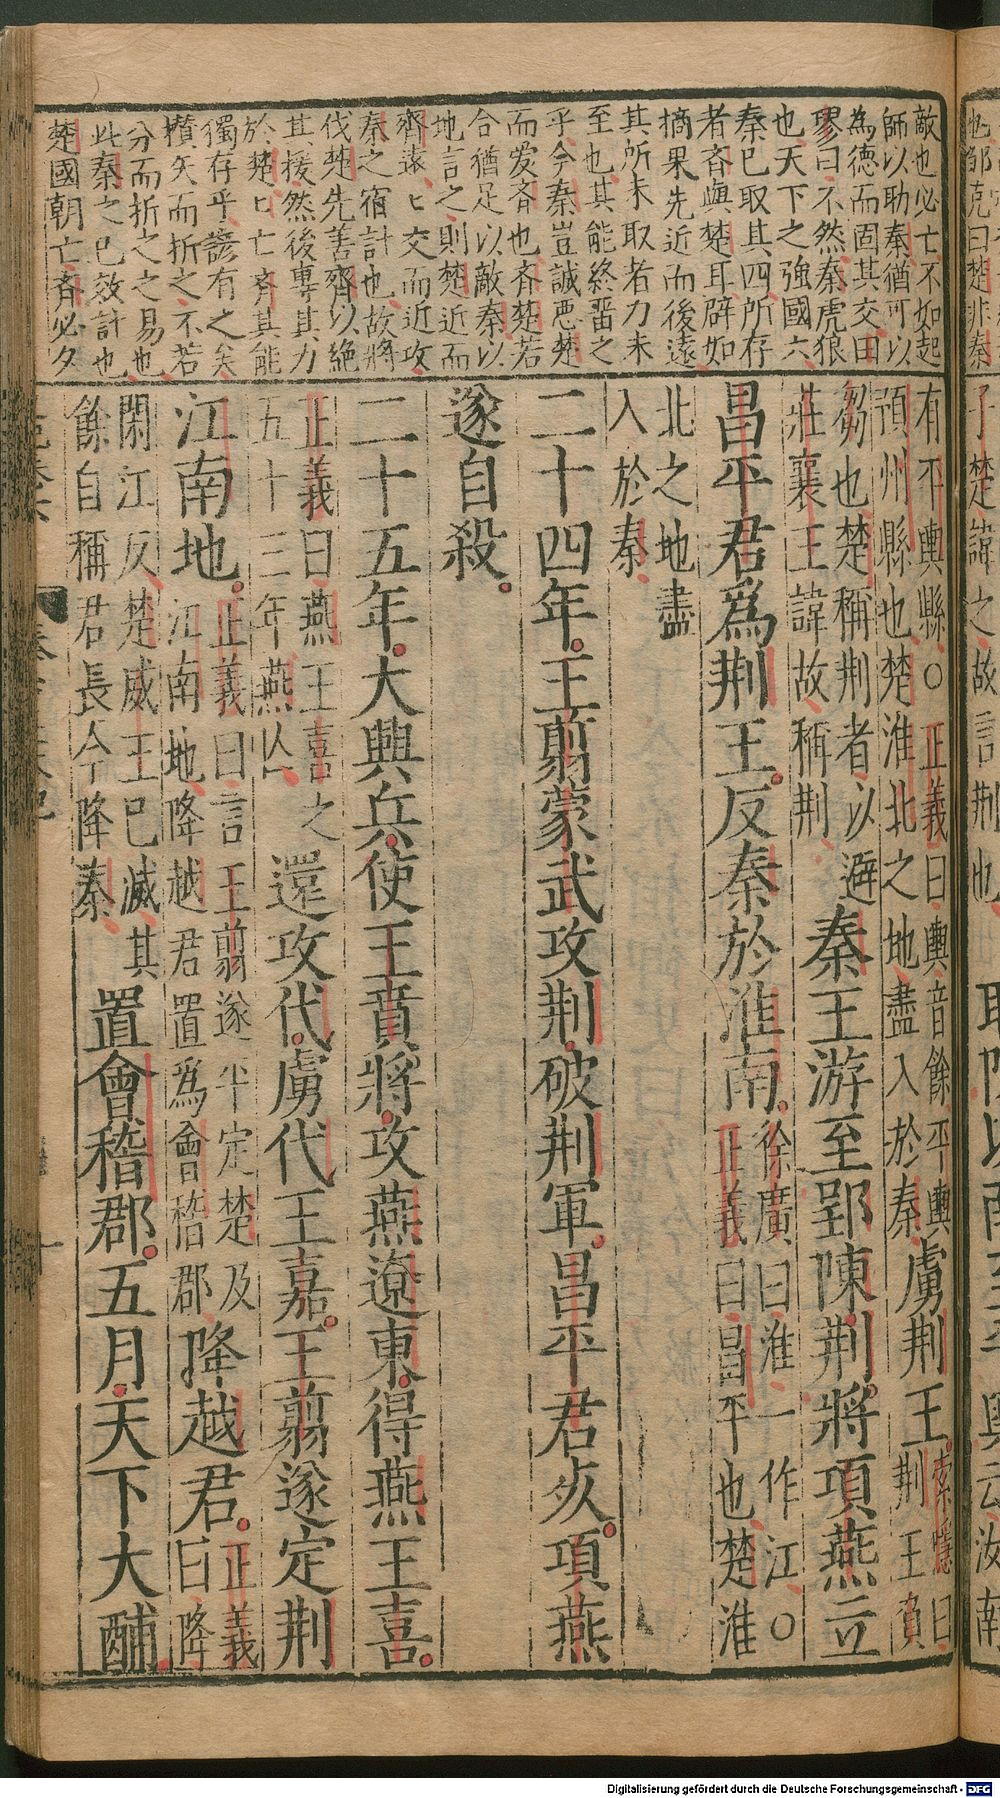 敵也必亡不如起
師以助秦猶可以
為德而固其交田
璆曰不然秦虎狼
也天下之強國六
秦已取其四所存
者斉與楚耳辟如
摘果先近而後遠
其所未取者力未
至也其能終畱之
乎今秦豈誠悪楚
而爱斉也斉楚若
合猶足以敵秦以
地言之則楚近而
齊遠匕交而近攻
秦之宿計也故將
伐楚先善齊以絶
其援然後專其力
於楚匕亡斉其能
獨存乎諺有之矣
攅矢而折之不若
分而折之之易也
此秦之已效計也
楚國朝亡斉必夕
有平輿縣○正義曰輿音餘平輿
預州縣也楚淮北之地盡入於秦
虜荆王
索隱曰
荆王負
芻也楚稱荆者以避
莊襄王諱故稱荆
秦王游至郢陳荆將項燕立
昌平君爲荆王反秦於淮南
徐廣曰淮一作江○
正義曰昌平也楚淮
北之地盡
入於秦
二十四年王翦蒙武攻荆破荆軍昌平君死項燕
遂自殺
二十五年大興兵使王賁將攻燕遼東得燕王喜
正義曰燕王喜之
五十三年燕亾
還攻代虜代王嘉王翦遂定荆
江南地
正義曰言王翦遂平定楚及
江南地降越君置爲會稽郡
降越君
正義
曰降
閑江反楚威王已滅其
餘自稱君長今降秦
置會稽郡五月天下大酺
Digitalisierung gefördert durch die Deutsche Forschungsgemeinschaft - DFG